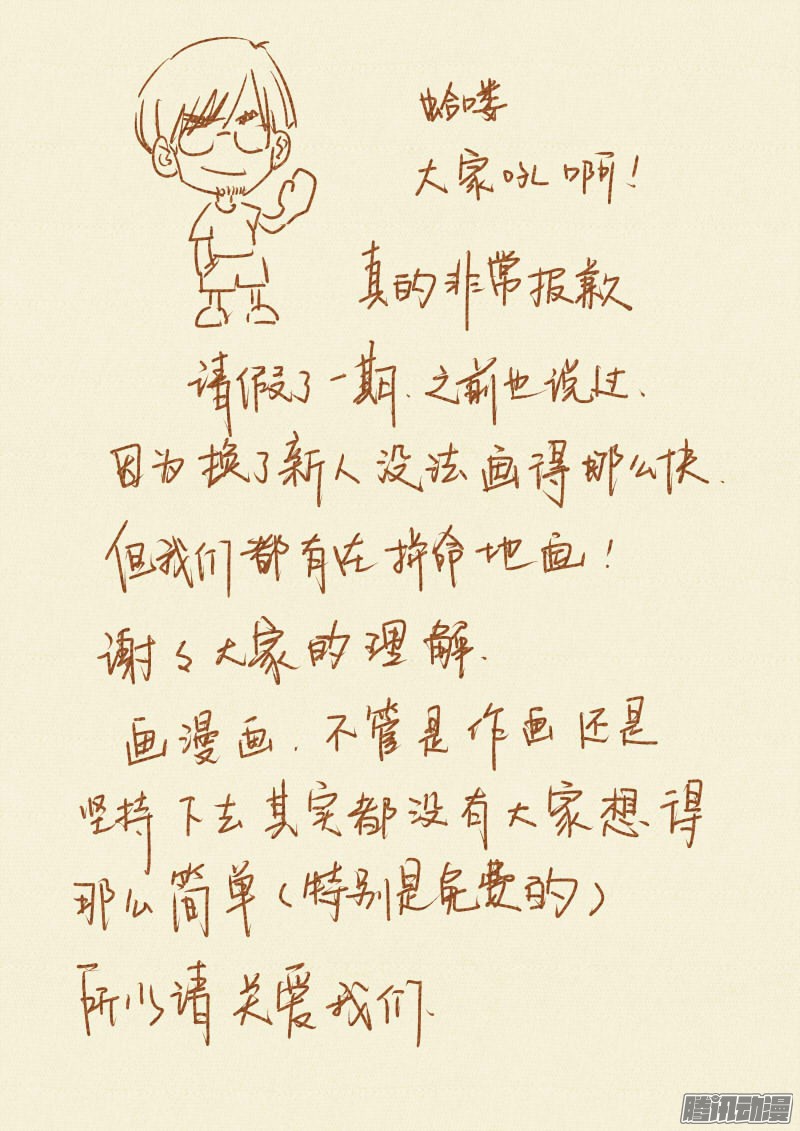 蛤喽
大家吼啊!
真的非常报歉
请假了一期、之前也说过、
因为换了新人没法画得那么快.
但我们都有在拼命地画!
谢々大家的理解.
画漫画、不管是作画还是
坚持下去其实都没有大家想得
那么简单(特别是免费的)
所以请关爱我们.
腾讯动漫